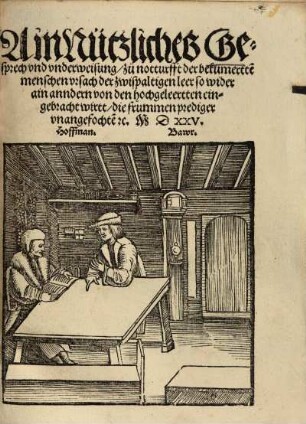 Ain Nützliches Ge-
sprech vnd vnderweisung / zů notturfft der bekumertē
menschen vrsach der zwispaltigen leer so wider
ain anndern von den hochgeleertten ein-
gebracht wirtt / die frummen prediger
vnangefochtē ꝛc. M D XXV.
Hoffman. Bawr.